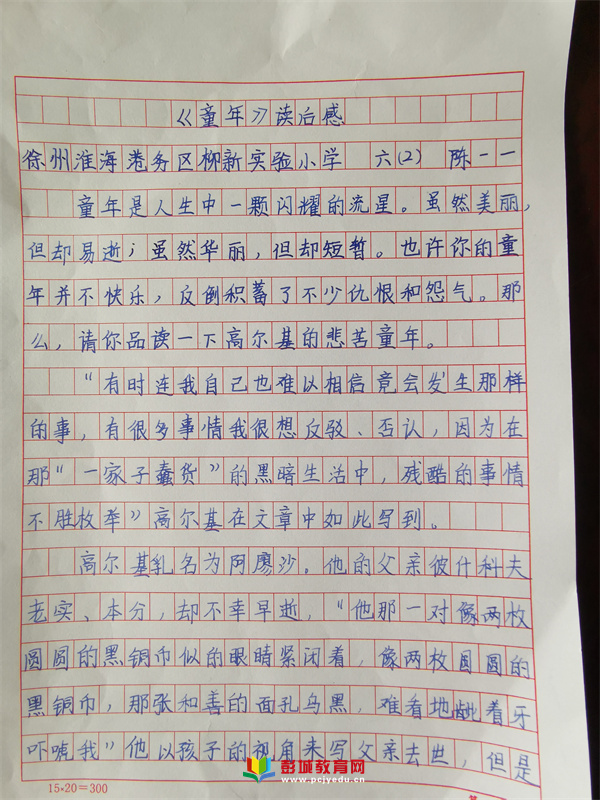 《童年》读后感
徐州淮海港务区柳新实验小学 六(2) 陈一一
童年是人生中一颗闪耀的流星。虽然美丽,
但却易逝;虽然华丽,但却短暂。也许你的童
年并不快乐,反倒积蓄了不少仇恨和怨气。那
么,请你品读一下高尔基的悲苦童年。
“有时连我自己也难以相信竟会发生那样
的事,有很多事情我很想反驳、否认,因为在
那“一家子蠢货”的黑暗生活中,残酷的事情
不胜枚举”高尔基在文章中如此写到。
高尔基乳名为阿廖沙。他的父亲彼什科夫
老实、本分,却不幸早逝,“他那一对像两枚
圆圆的黑铜币似的眼睛紧闭着,像两枚圆圆的
黑铜币,那张和善的面孔乌黑,难看地龇着牙
吓唬我”他以孩子的视角来写父亲去世,但是
15×20=300
彭城教育网
www.pcjyedu.com